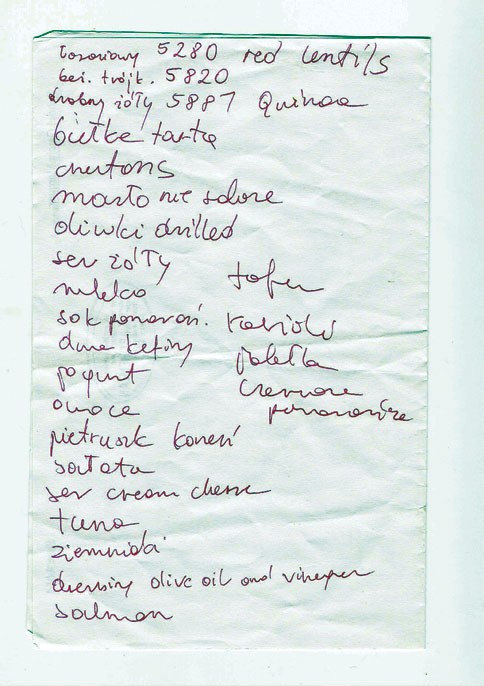 łososiowy 5280 red lentils
beż. trójk. 5820
drobny żółty 5887 Quinoa
bułkę tartą
crutons
masło nie solone
oliwki drilled
ser żółty
tofu
mleko
sok pomarań.
ravioli
dwa kefiny
jabłka
jogurt
czerwone
owoce
pomarańcze
pietruszk korzeń
sałata
ser cream cheese
tuna
ziemniaki
dressing olive oil and vineger
salmon